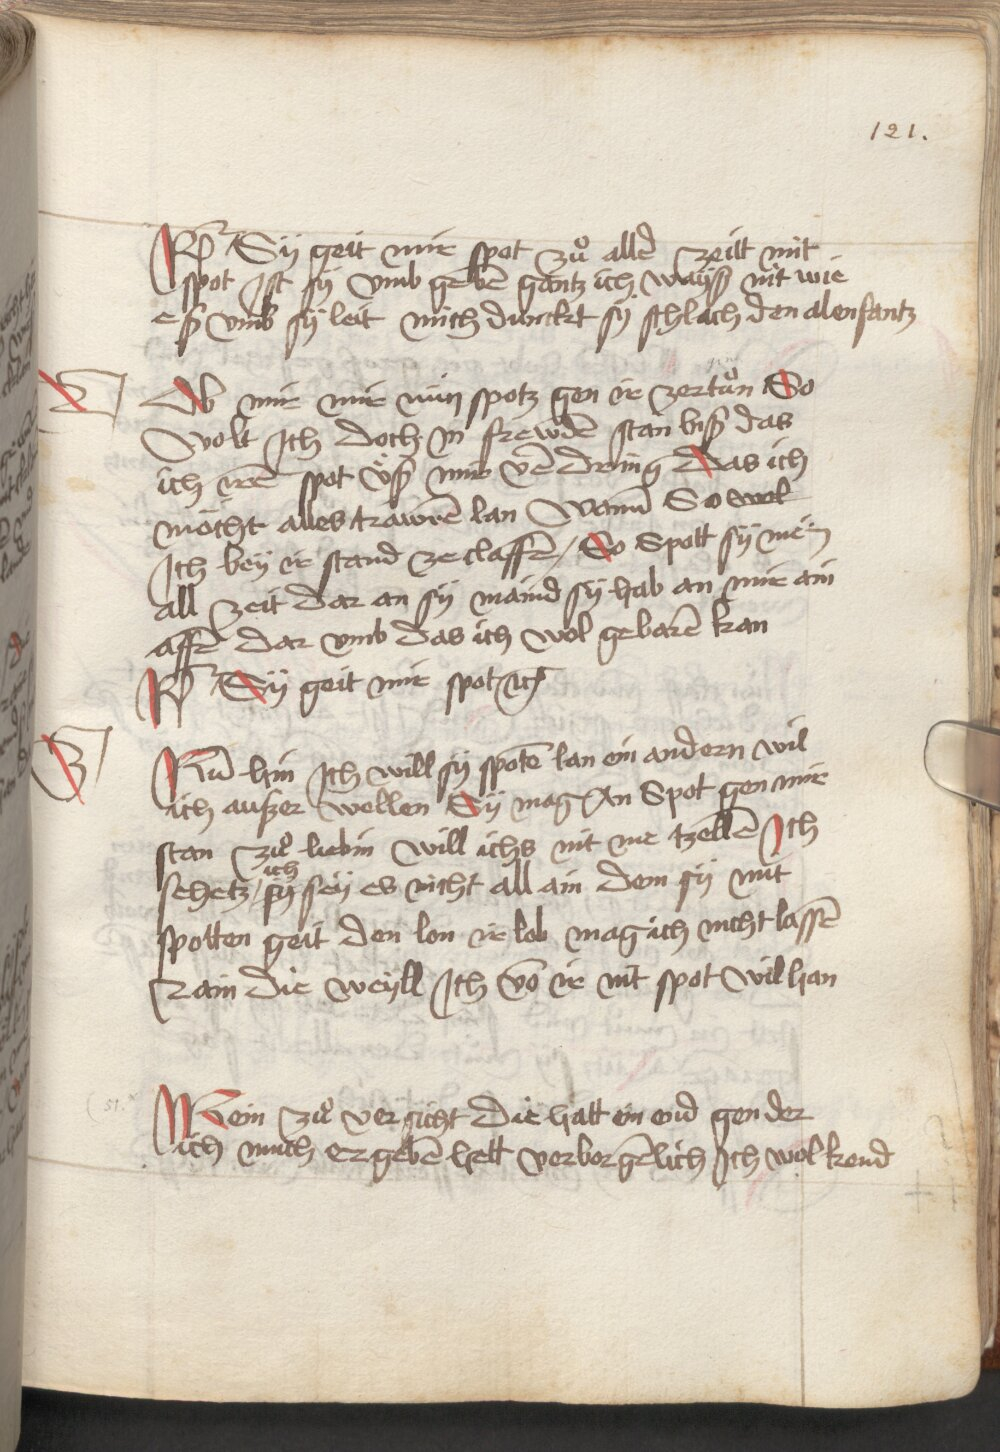 121.
Rp Sÿ geit mir spot zů alle zeitt mit
spot Ist sÿ vmb geben gantz ich wayß nit wie
eß vmb sÿ leit mich dunckt sÿ schlach den alenfantz
2 Ob mir mir nun spotz gen ir zertůn So
wolt Ich doch in frewden stan biß das
ich iren spot vß mir ve dring das ich
möcht alles trawren lan Wann So wol
Ich beÿ ir stand ze claffen / So Spott sÿ mein
all zeit dar an sÿ maind sÿ hab an mir ain
affen dar vmb das ich wol gebaren kan
Rp Sÿ geit mir spot etc
3 Nu hin Ich will sÿ spoten lan ein andern wil
ich außer wellen Sÿ mag An Spot gen mir
stan zů liebin will ichs nit me tzellen Ich
ich
schetz / sÿ seÿ es nicht all ain dem sÿ mit
spotten geit den lon ir lob mag ich nicht lassen
rain die weÿll Ich von ir nit spot will han
(51.
Mein zů versicht die hatt ein end gen der
ich mich ergeben hett verborgenlich Ich wol kend